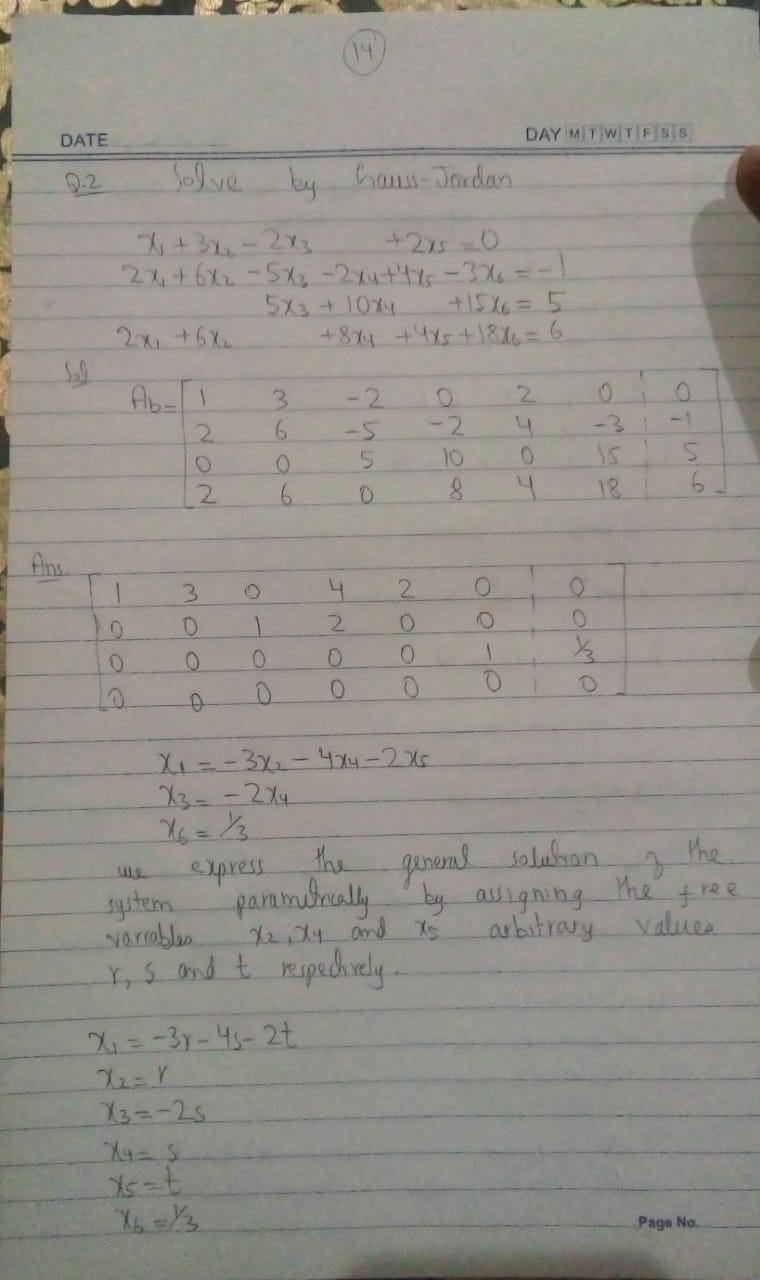 14
DATE
DAY M T W T F S S
Q.2 Solve by Gauss-Jordan
x₁ + 3x₂ - 2x₃ + 2x₅ = 0
2x₁ + 6x₂ - 5x₃ - 2x₄ + 4x₅ - 3x₆ = -1
5x₃ + 10x₄ + 15x₆ = 5
2x₁ + 6x₂ + 8x₄ + 4x₅ + 18x₆ = 6
Sol
Ab = 1 3 -2 0 2 0 0
2 6 -5 -2 4 -3 -1
0 0 5 10 0 15 5
2 6 0 8 4 18 6
Ans
1 3 0 4 2 0 0
0 0 1 2 0 0 0
0 0 0 0 0 1 1/3
0 0 0 0 0 0 0
x₁ = -3x₂ - 4x₄ - 2x₅
x₃ = -2x₄
x₆ = 1/3
we express the general solution of the
system parametrically by assigning the free
variables x₂, x₄ and x₅ arbitrary values
r, s and t respectively.
x₁ = -3r - 4s - 2t
x₂ = r
x₃ = -2s
x₄ = s
x₅ = t
x₆ = 1/3
Page No.